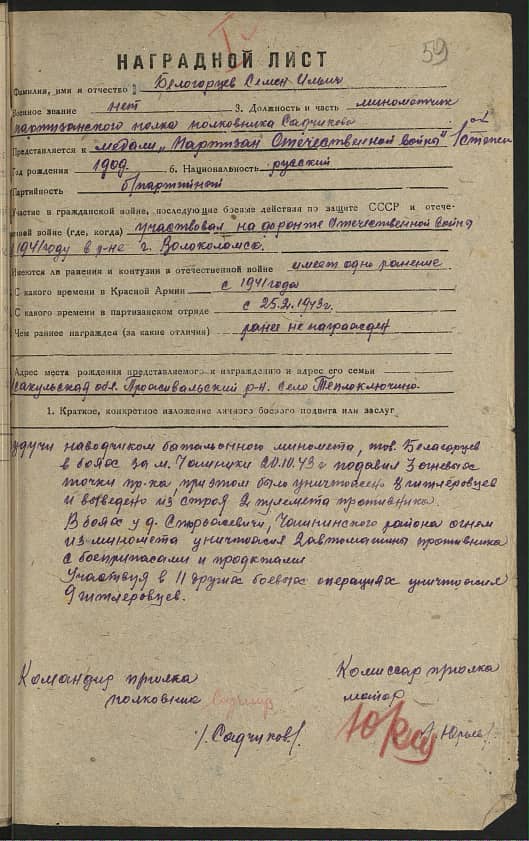 59
НАГРАДНОЙ ЛИСТ
Фамилия, имя и отчество Белогорцев Семен Ильич
Военное звание нет 3. Должность и часть минометчик
партизанского полка полковника Садчикова
Представляется к медали „Партизан Отечественной войны" I степени
Год рождения 6. Национальность русский
Партийность б/партийный
Участие в гражданской войне, последующие боевые действия по защите СССР и отече-
ственной войне (где, когда) участвовал на фронте Отечественной войны
1941 году в р-не г. Волоколамск.
Имеются ли ранения и контузии в отечественной войне имеет одно ранение
С какого времени в Красной Армии с 1941 года
С какого времени в партизанском отряде с 25.2.1943 г.
Чем раннее награжден (за какие отличия) ранее не награжден
Адрес места рождения представляемого к награждению и адрес его семьи
обл. Пржевальский р-н. село Теплоключинко.
1. Краткое, конкретное изложение личного боевого подвига или заслуг
Будучи наводчиком батальонного миномета, тов. Белагорцев
в боях за м. Чашники 20.10.43 г подавил 3 огневых
точки пр-ка, при этом было уничтожено гитлеровцев
и выведено из строя 2 пулемета противника.
В боях у д. Чашнинского района огнем
из миномета уничтожил 2 автомашины противника
с боеприпасами и продктами
Участвуя в 11 других боевых операциях уничтожил
9 гитлеровцев.
Командир п/полка
полковник
/.Садчиков./
Комиссар п/полка
майор